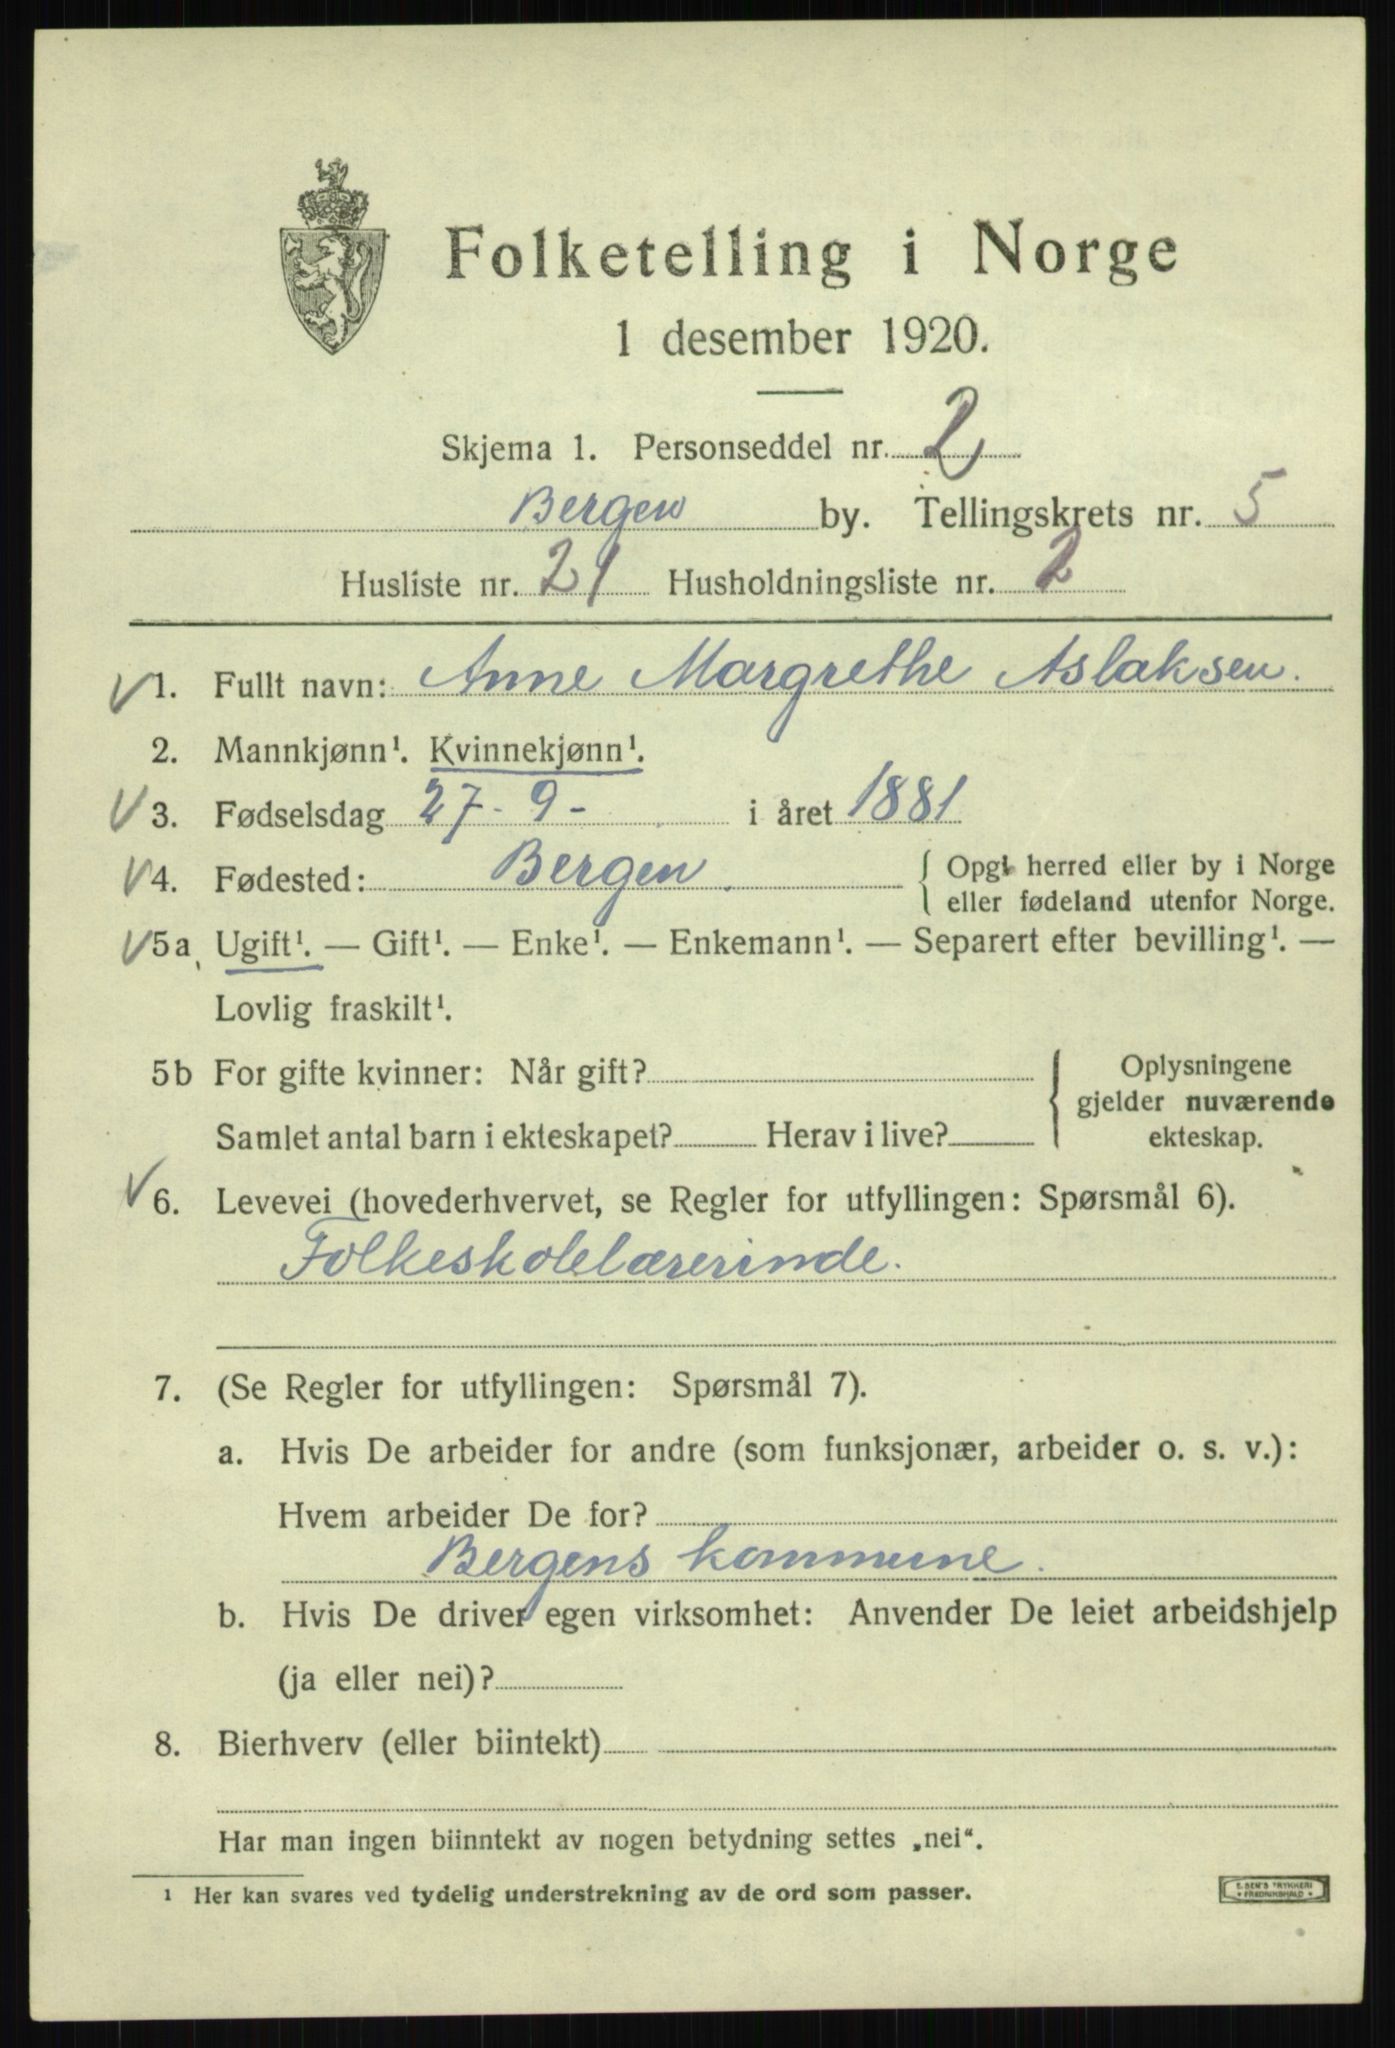 Folketelling i Norge
1 desember 1920.
Skjema 1. Personseddel nr. 2
Bergen by. Tellingskrets nr. 5
Husliste nr. 21 Husholdningsliste nr. 2
1. Fullt navn: Anne Margrethe Aslaksen.
2. Mannkjønn¹. Kvinnekjønn¹.
3. Fødselsdag 27-9- i året 1881
4. Fødested: Bergen. { Opgi herred eller by i Norge
eller fødeland utenfor Norge.
5a Ugift¹. — Gift¹. — Enke¹. — Enkemann¹. — Separert efter bevilling¹. —
Lovlig fraskilt¹.
5b For gifte kvinner: Når gift? { Oplysningene
gjelder nuværende
Samlet antal barn i ekteskapet? Herav i live? ekteskap.
6. Levevei (hovederhvervet, se Regler for utfyllingen: Spørsmål 6).
Folkeskolelærerinde.
7. (Se Regler for utfyllingen: Spørsmål 7).
a. Hvis De arbeider for andre (som funksjonær, arbeider o. s. v.):
Hvem arbeider De for?
Bergens kommune.
b. Hvis De driver egen virksomhet: Anvender De leiet arbeidshjelp
(ja eller nei)?
8. Bierhverv (eller biintekt)
Har man ingen biinntekt av nogen betydning settes „nei“.
¹ Her kan svares ved tydelig understrekning av de ord som passer.
FREDRIKSHALD